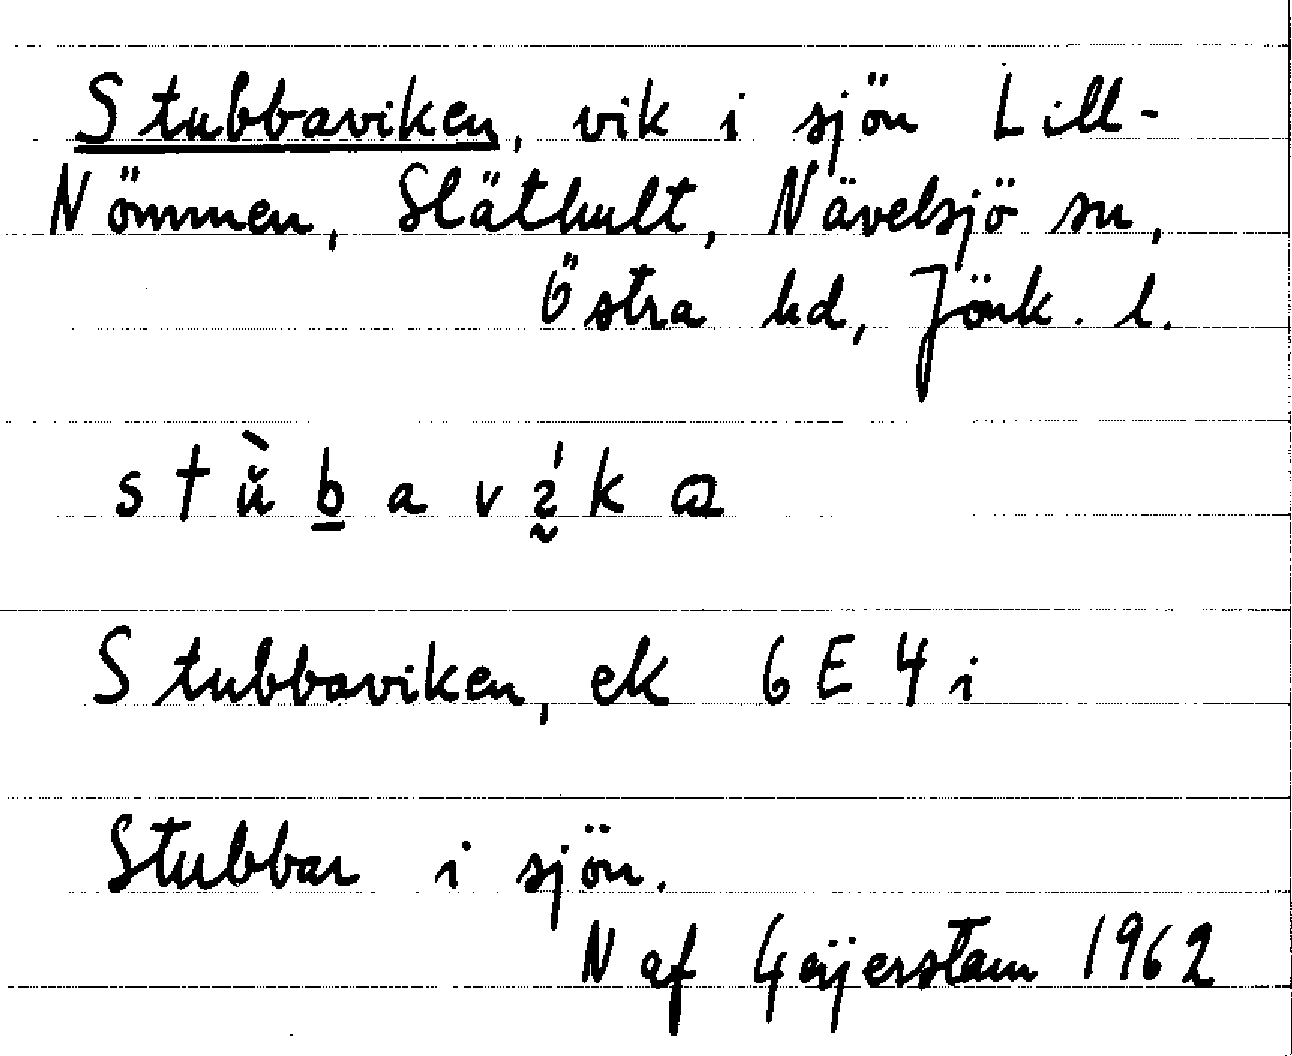 Stubbaviken, vik i sjön Lill-
Nömmen, Släthult, Nävelsjö sn,
Östra hd, Jönk. l.
Stubbaviken, ek 6E4i
Stubbar i sjön.
N af Geijerstam 1962